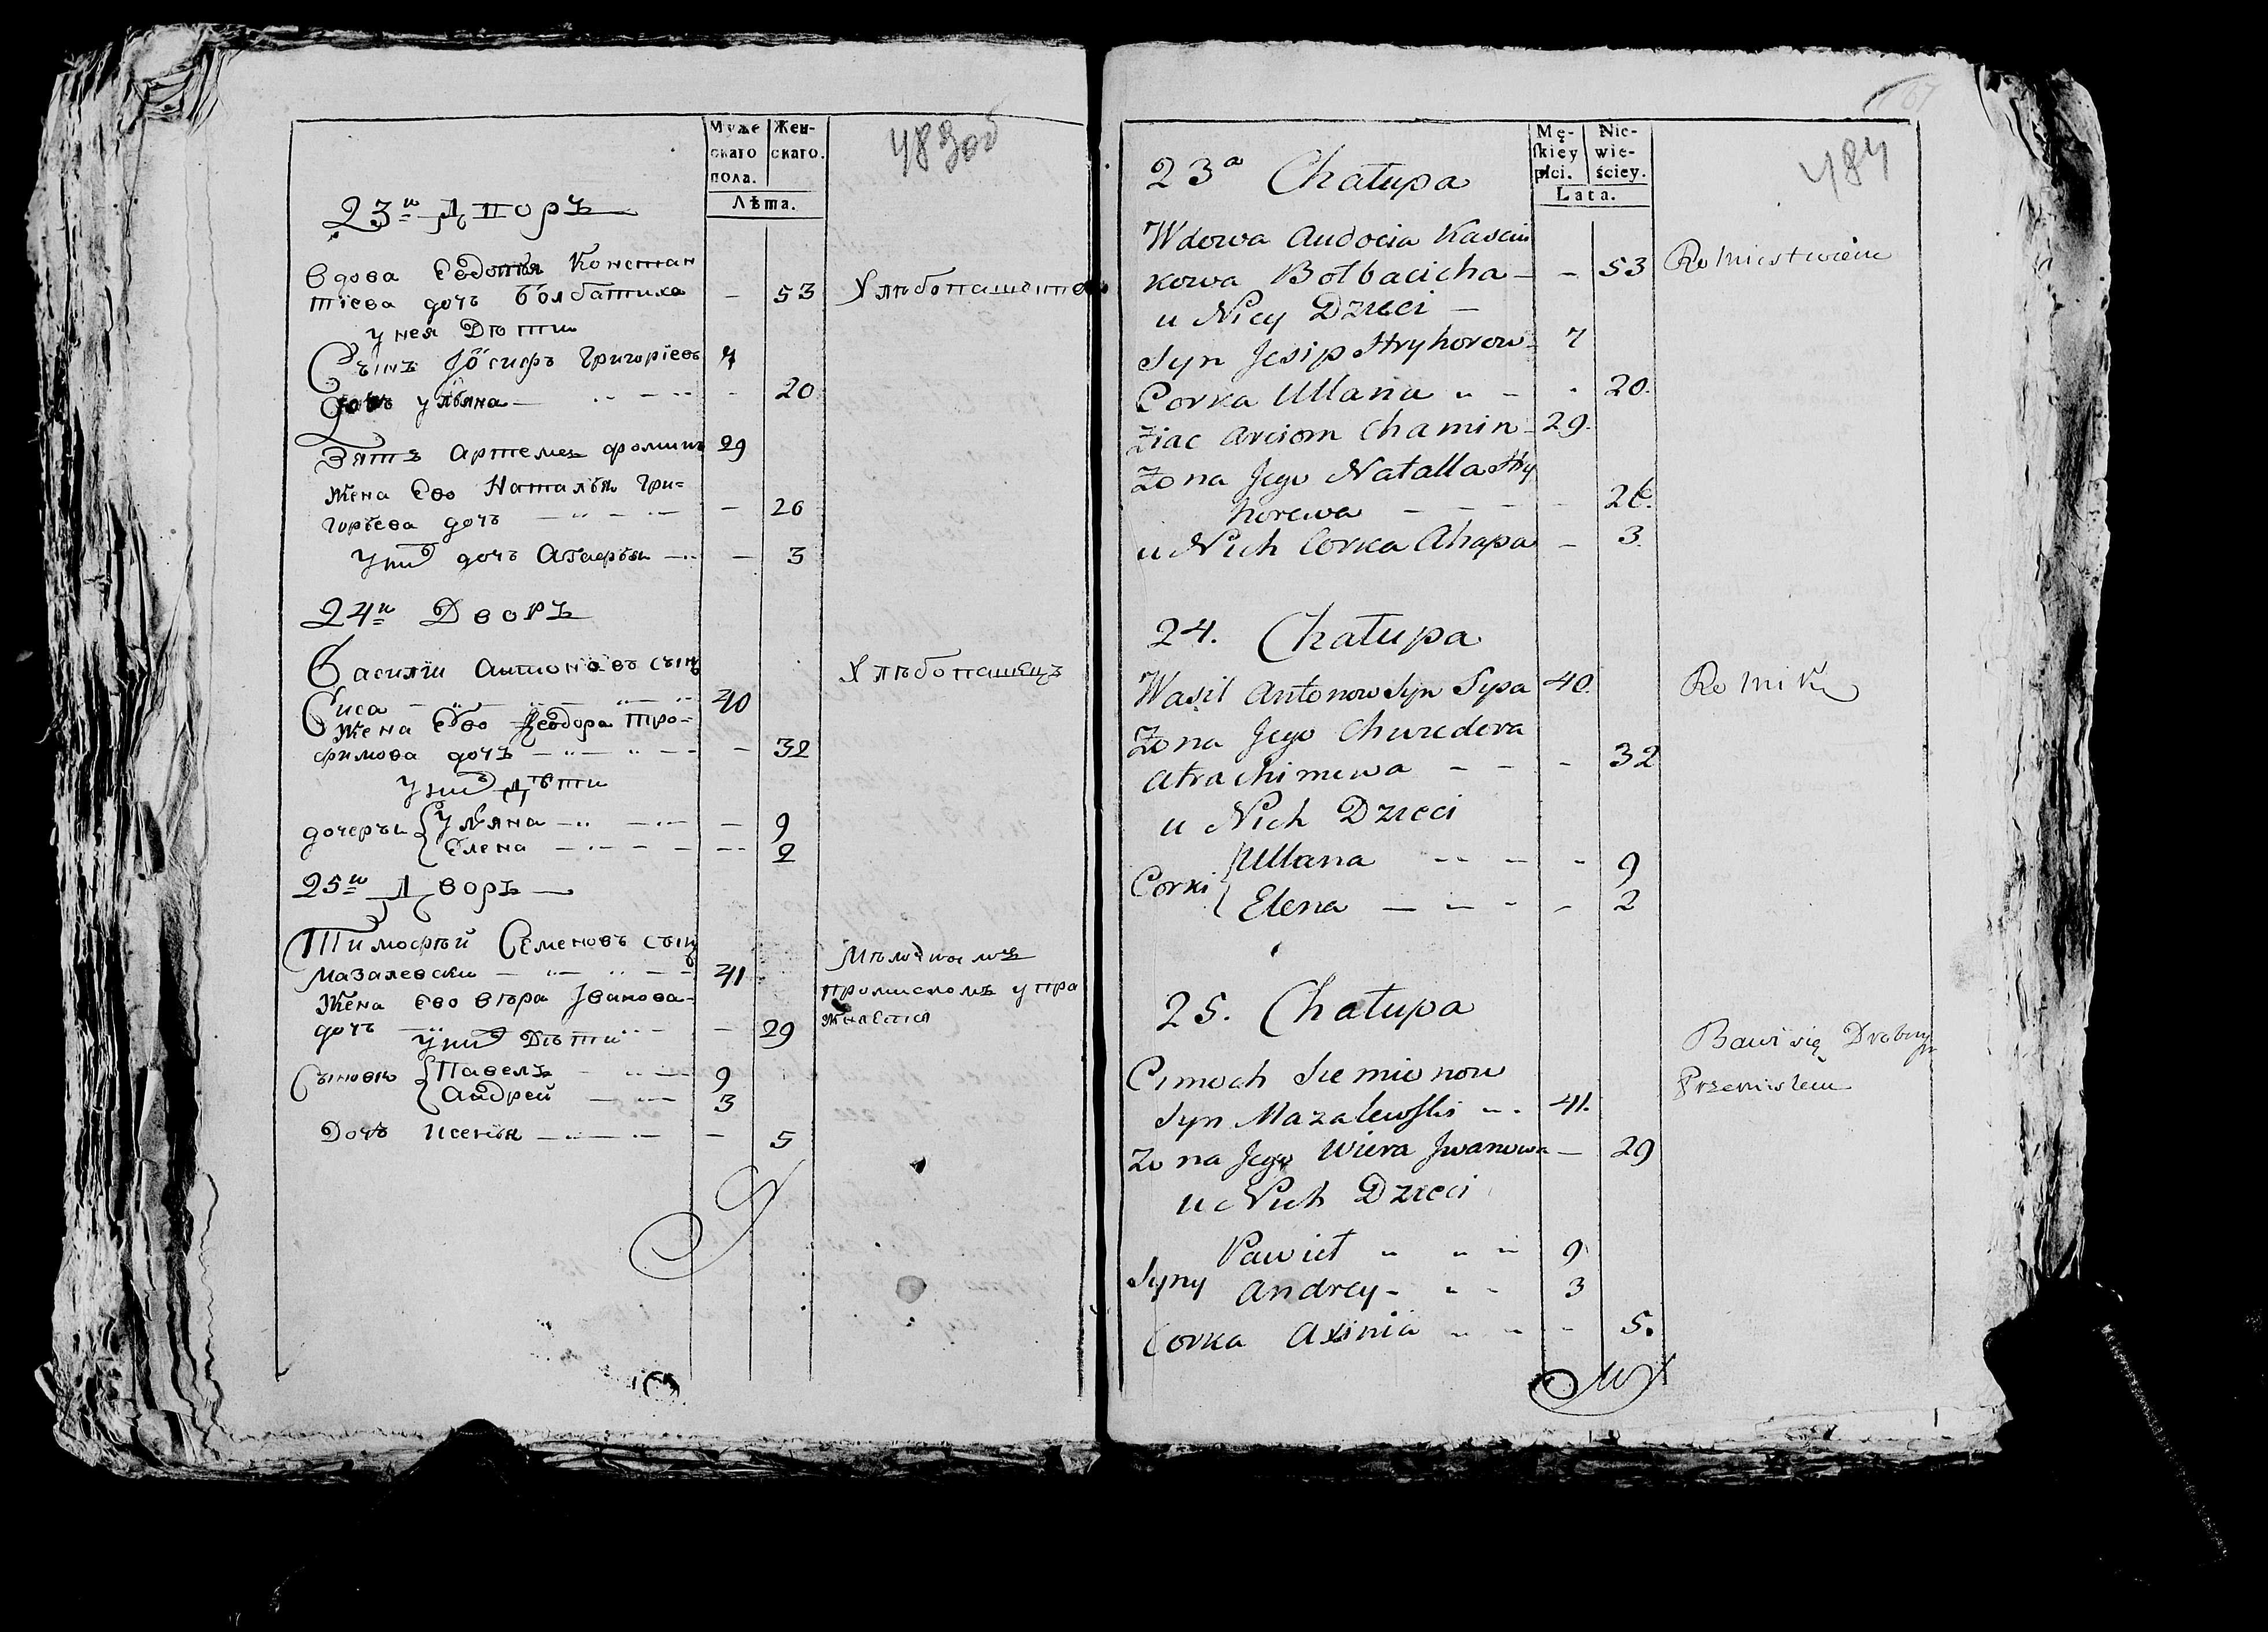 Муже
скаго
пола.
Жен-
скаго.
Лѣта.
483об
23й Дворъ
Вдова Евдотья Констан
тіева дочь Болбатиха — 53 Хлѣбопашество
у нея Дѣти
Сынъ Іосифъ Григоріевъ 7
дочь Ульяна — 20
Зять Артемей Фоминъ 29
Жена Ево Наталья Гри=
горіева дочь — 26
у них дочь Агафья — 3
24й Дворъ
Василій Антоновъ сынъ Хлѣбопашецъ
Сипа 40
Жена Ево Феодора Тро=
фимова дочь — 32
у них Дѣти
дочеръи { Ульяна — 9
Елена — 2
25й Дворъ
Тимофѣй Семеновъ сынъ
Мазалевски 41
промисломъ упра
жнается
Жена Ево Вѣра Іванова-
дочь — 29
у них Дѣти
Сыновъи { Павелъ 9
Андрей 3
Дочь Ксенья — 5
Mę-
skiey
płci.
Nie-
wie-
ściey.
Lata.
484
23a Chałupa
Wdowa Audocia Kasciu
kowa Bołbacicha — 53 Rolnictwem
u Niey Dzieci —
Syn Jesip Hryhorow= 7
Corka Ullana 20.
Ziac Arciom Chamin 29.
Zona Jego Natalla Hry
horewa — 26.
u Nich Corka Ahapa — 3.
24. Chałupa
Wasil Antonow Syn Sypa 40. Rolnik
Zona Jego Chwedora
Atrachimowa — 32
u Nich Dzieci
Corki { Ullana — 9
Elena — 2
25. Chałupa
Bawi się Drobnym
Przemisłem
Cimoch Siemionow
Syn Mazalewski 41.
Zona Jego Wiera Jwanowa — 29
u Nich Dzieci
Syny Pawieł 9
Andrey 3
Corka Axinia — 5.